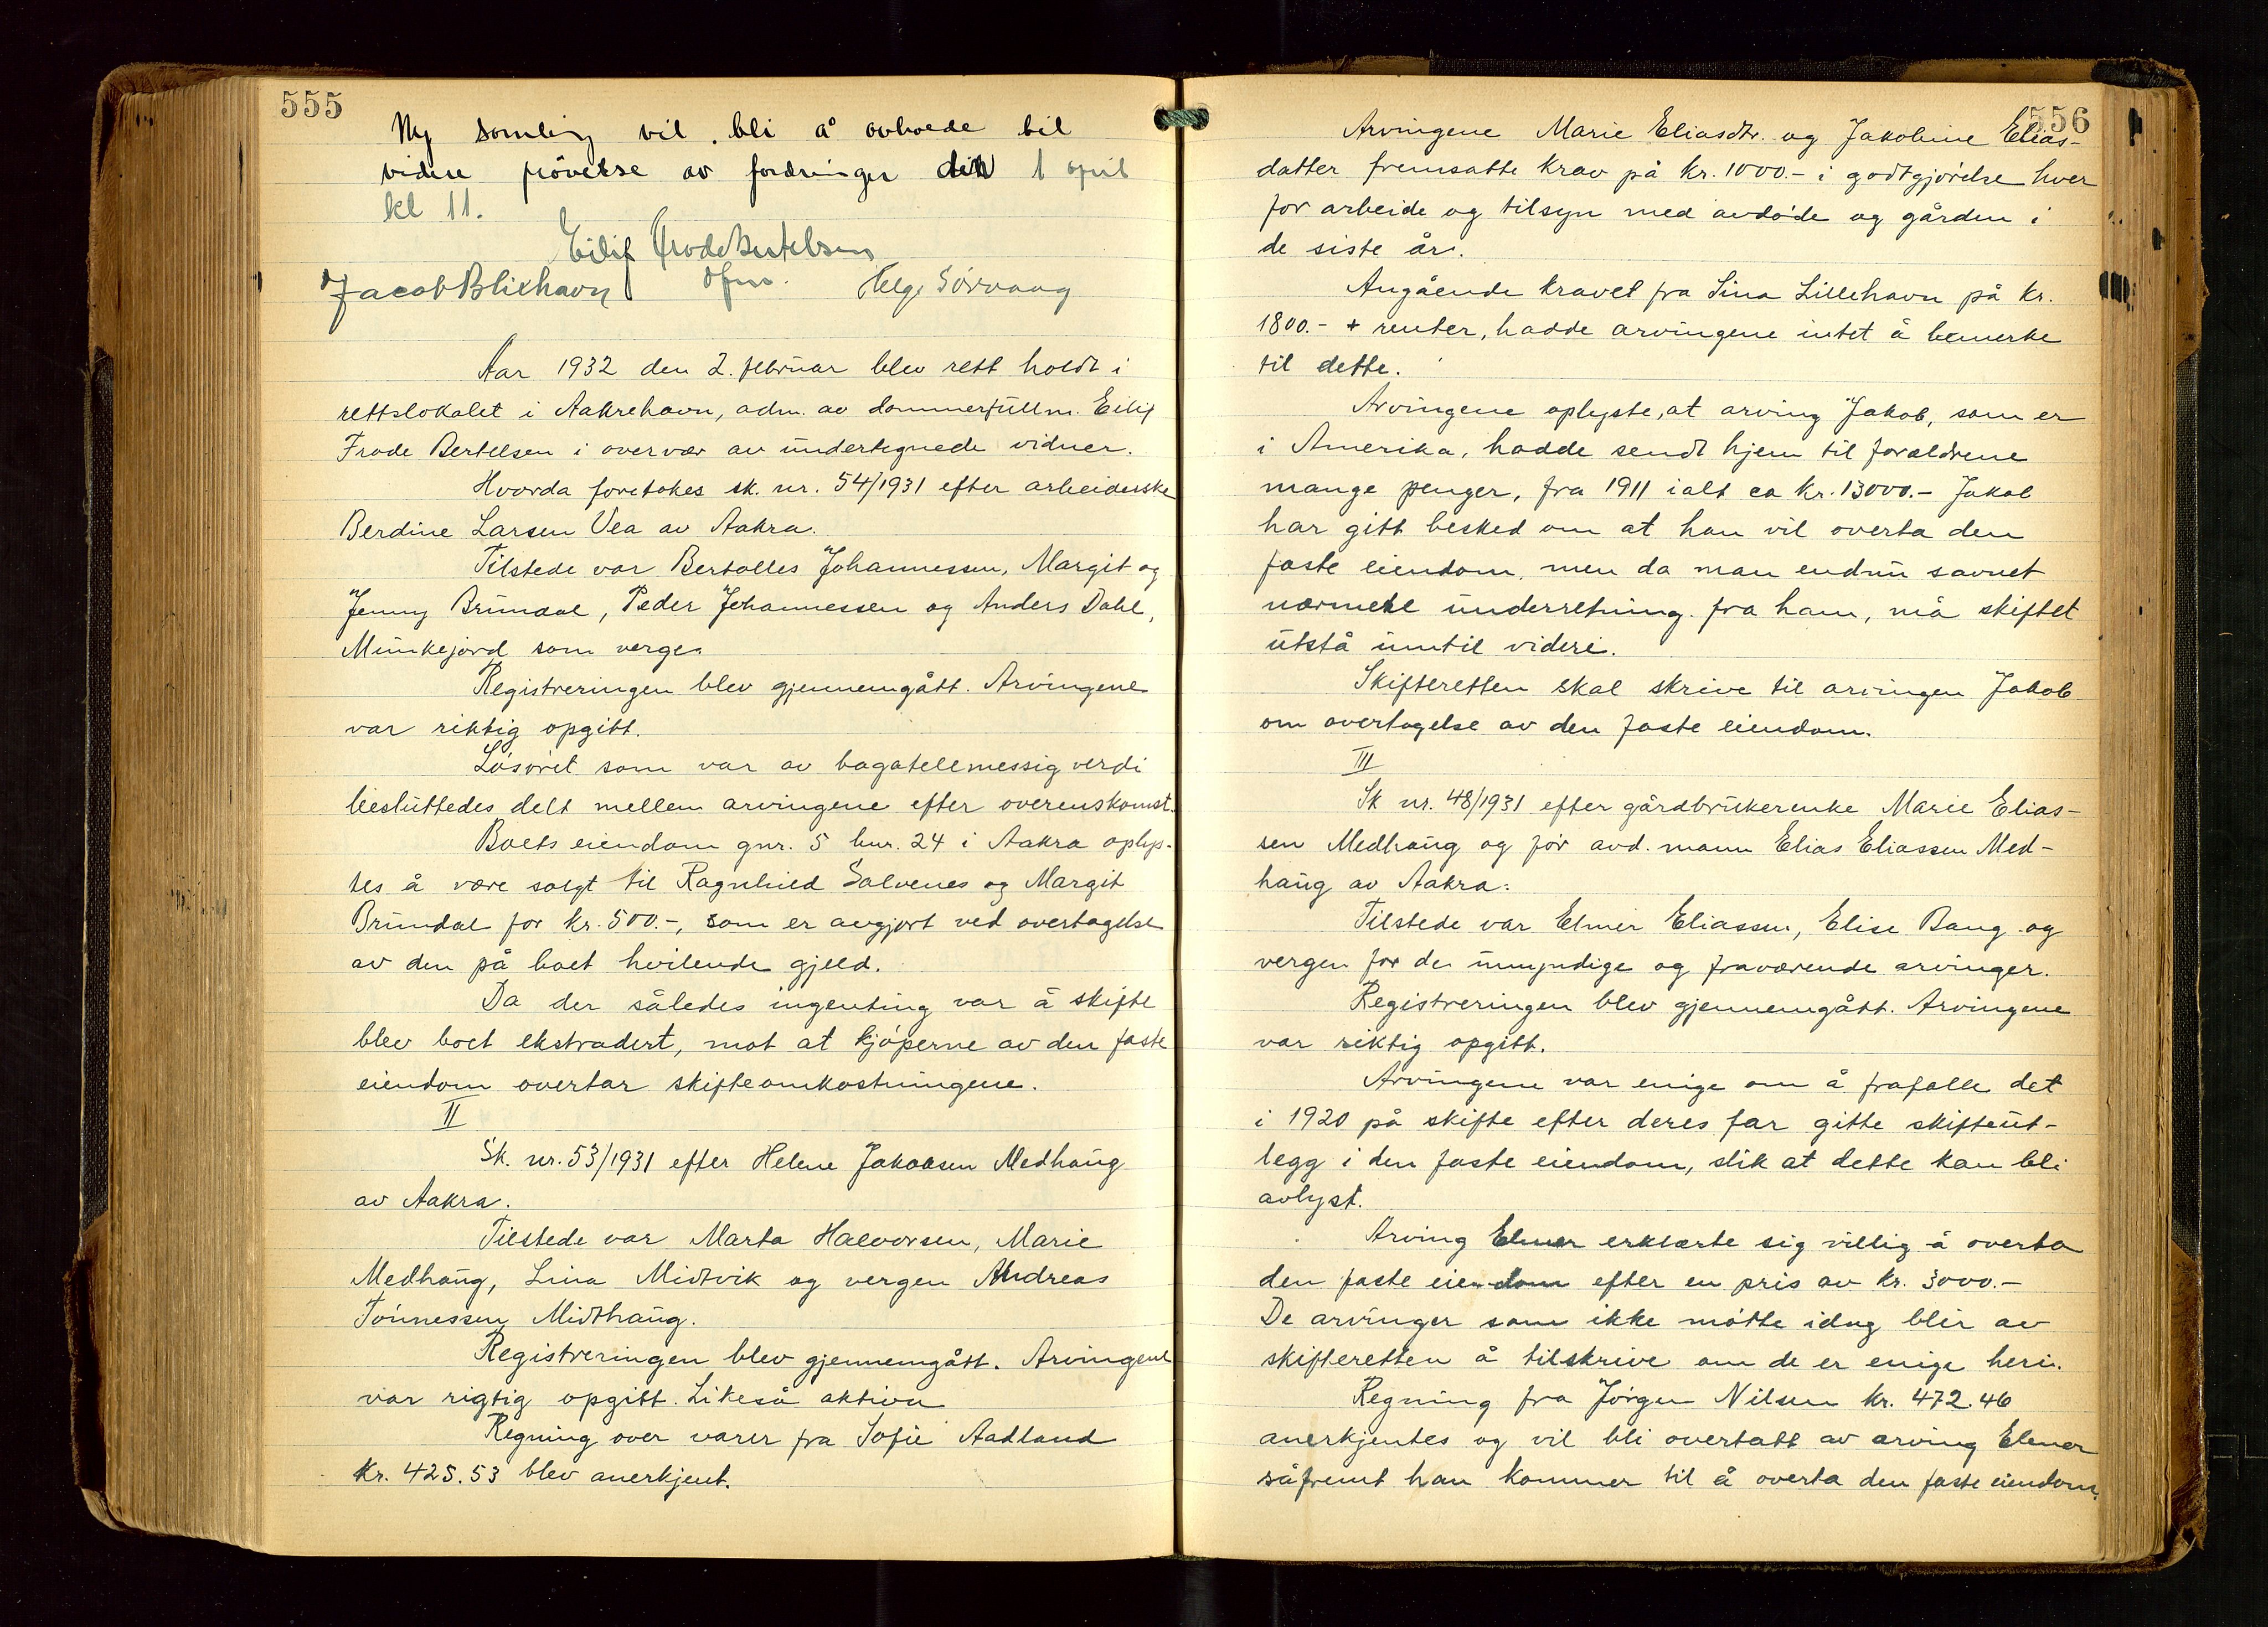 555
Ny samling vil bli å avholde til
videre prövelse av fordringer den 1 april
kl 11.
Eilif Frode Bertelsen
dfm.
Jacob Blikhavn Helge Sørvaag
Aar 1932 den 2. februar blev rett holdt i
rettslokalet i Aakrehavn, adm. av dommerfullm. Eilif
Frode Bertelsen i overvær av undertegnede vidner.
Hvorda foretokes sk. nr. 54/1931 efter arbeiderske
Berdine Larsen Vea av Aakra.
Tilstede var Bertolles Johannessen, Margit og
Jenny Brundal, Peder Johannessen og Anders Dahl,
Munkejord som verge.
Registreringen blev gjennemgått. Arvingene
var riktig opgitt.
Løsøret som var av bagatellmessig verdi
besluttedes delt mellem arvingene efter overenskomst.
Boets eiendom gnr. 5 bnr. 24 i Aakra oplys-
tes å være solgt til Ragnhild Salvenes og Margit
Brundal for kr. 500.-, som er avgjort ved overtagelse
av den på boet hvilende gjeld.
Da der således ingenting var å skifte
blev boet ekstradert, mot at kjøperne av den faste
eiendom overtar skifteomkostningene.
II
Sk. nr. 53/1931 efter Helene Jakobsen Medhaug
av Aakra.
Tilstede var Marta Halvorsen, Marie
Medhaug, Lina Midtvik og vergen Andreas
Tønnessen Midthaug.
Registreringen blev gjennemgått. Arvingene
var rigtig opgitt. Likeså aktiva
Regning over varer fra Sofie Aadland
kr. 425.53 blev anerkjent.
556
Arvingene Marie Eliasdtr. og Jakobine Elias-
datter fremsatte krav på kr. 1000.- i godtgjørelse hver
for arbeide og tilsyn med avdøde og gården i
de siste år.
Angående kravet fra Sina Lillehavn på kr.
1800.- + renter, hadde arvingene intet å bemerke
til dette.
Arvingene oplyste, at arving Jakob, som er
i Amerika, hadde sendt hjem til forældrene
mange penger, fra 1911 ialt ca kr. 13000.- Jakob
har gitt besked om at han vil overta den
faste eiendom, men da man endnu savnet
nærmere underretning fra ham, må skiftet
utstå inntil videre.
Skifteretten skal skrive til arvingen Jakob
om overtagelse av den faste eiendom.
III
Sk nr. 48/1931 efter gårdbrukerenke Marie Elias-
sen Medhaug og før avd. mann Elias Eliassen Med-
haug av Aakra.
Tilstede var Elmer Eliassen, Elise Bang og
vergen for de umyndige og fraværende arvinger.
Registreringen blev gjennemgått. Arvingene
var riktig opgitt.
Arvingene var enige om å frafalle det
i 1920 på skifte efter deres far gitte skifteut-
legg i den faste eiendom, slik at dette kan bli
avlyst.
Arving Elmer erklærte sig villig å overta
den faste eiendom efter en pris av kr. 3000.-
De arvinger som ikke møtte idag blir av
skifteretten å tilskrive om de er enige heri.
Regning fra Jørgen Nilsen kr. 472.46
anerkjentes og vil bli overtatt av arving Elmer
såfremt han kommer til å overta den faste eiendom.